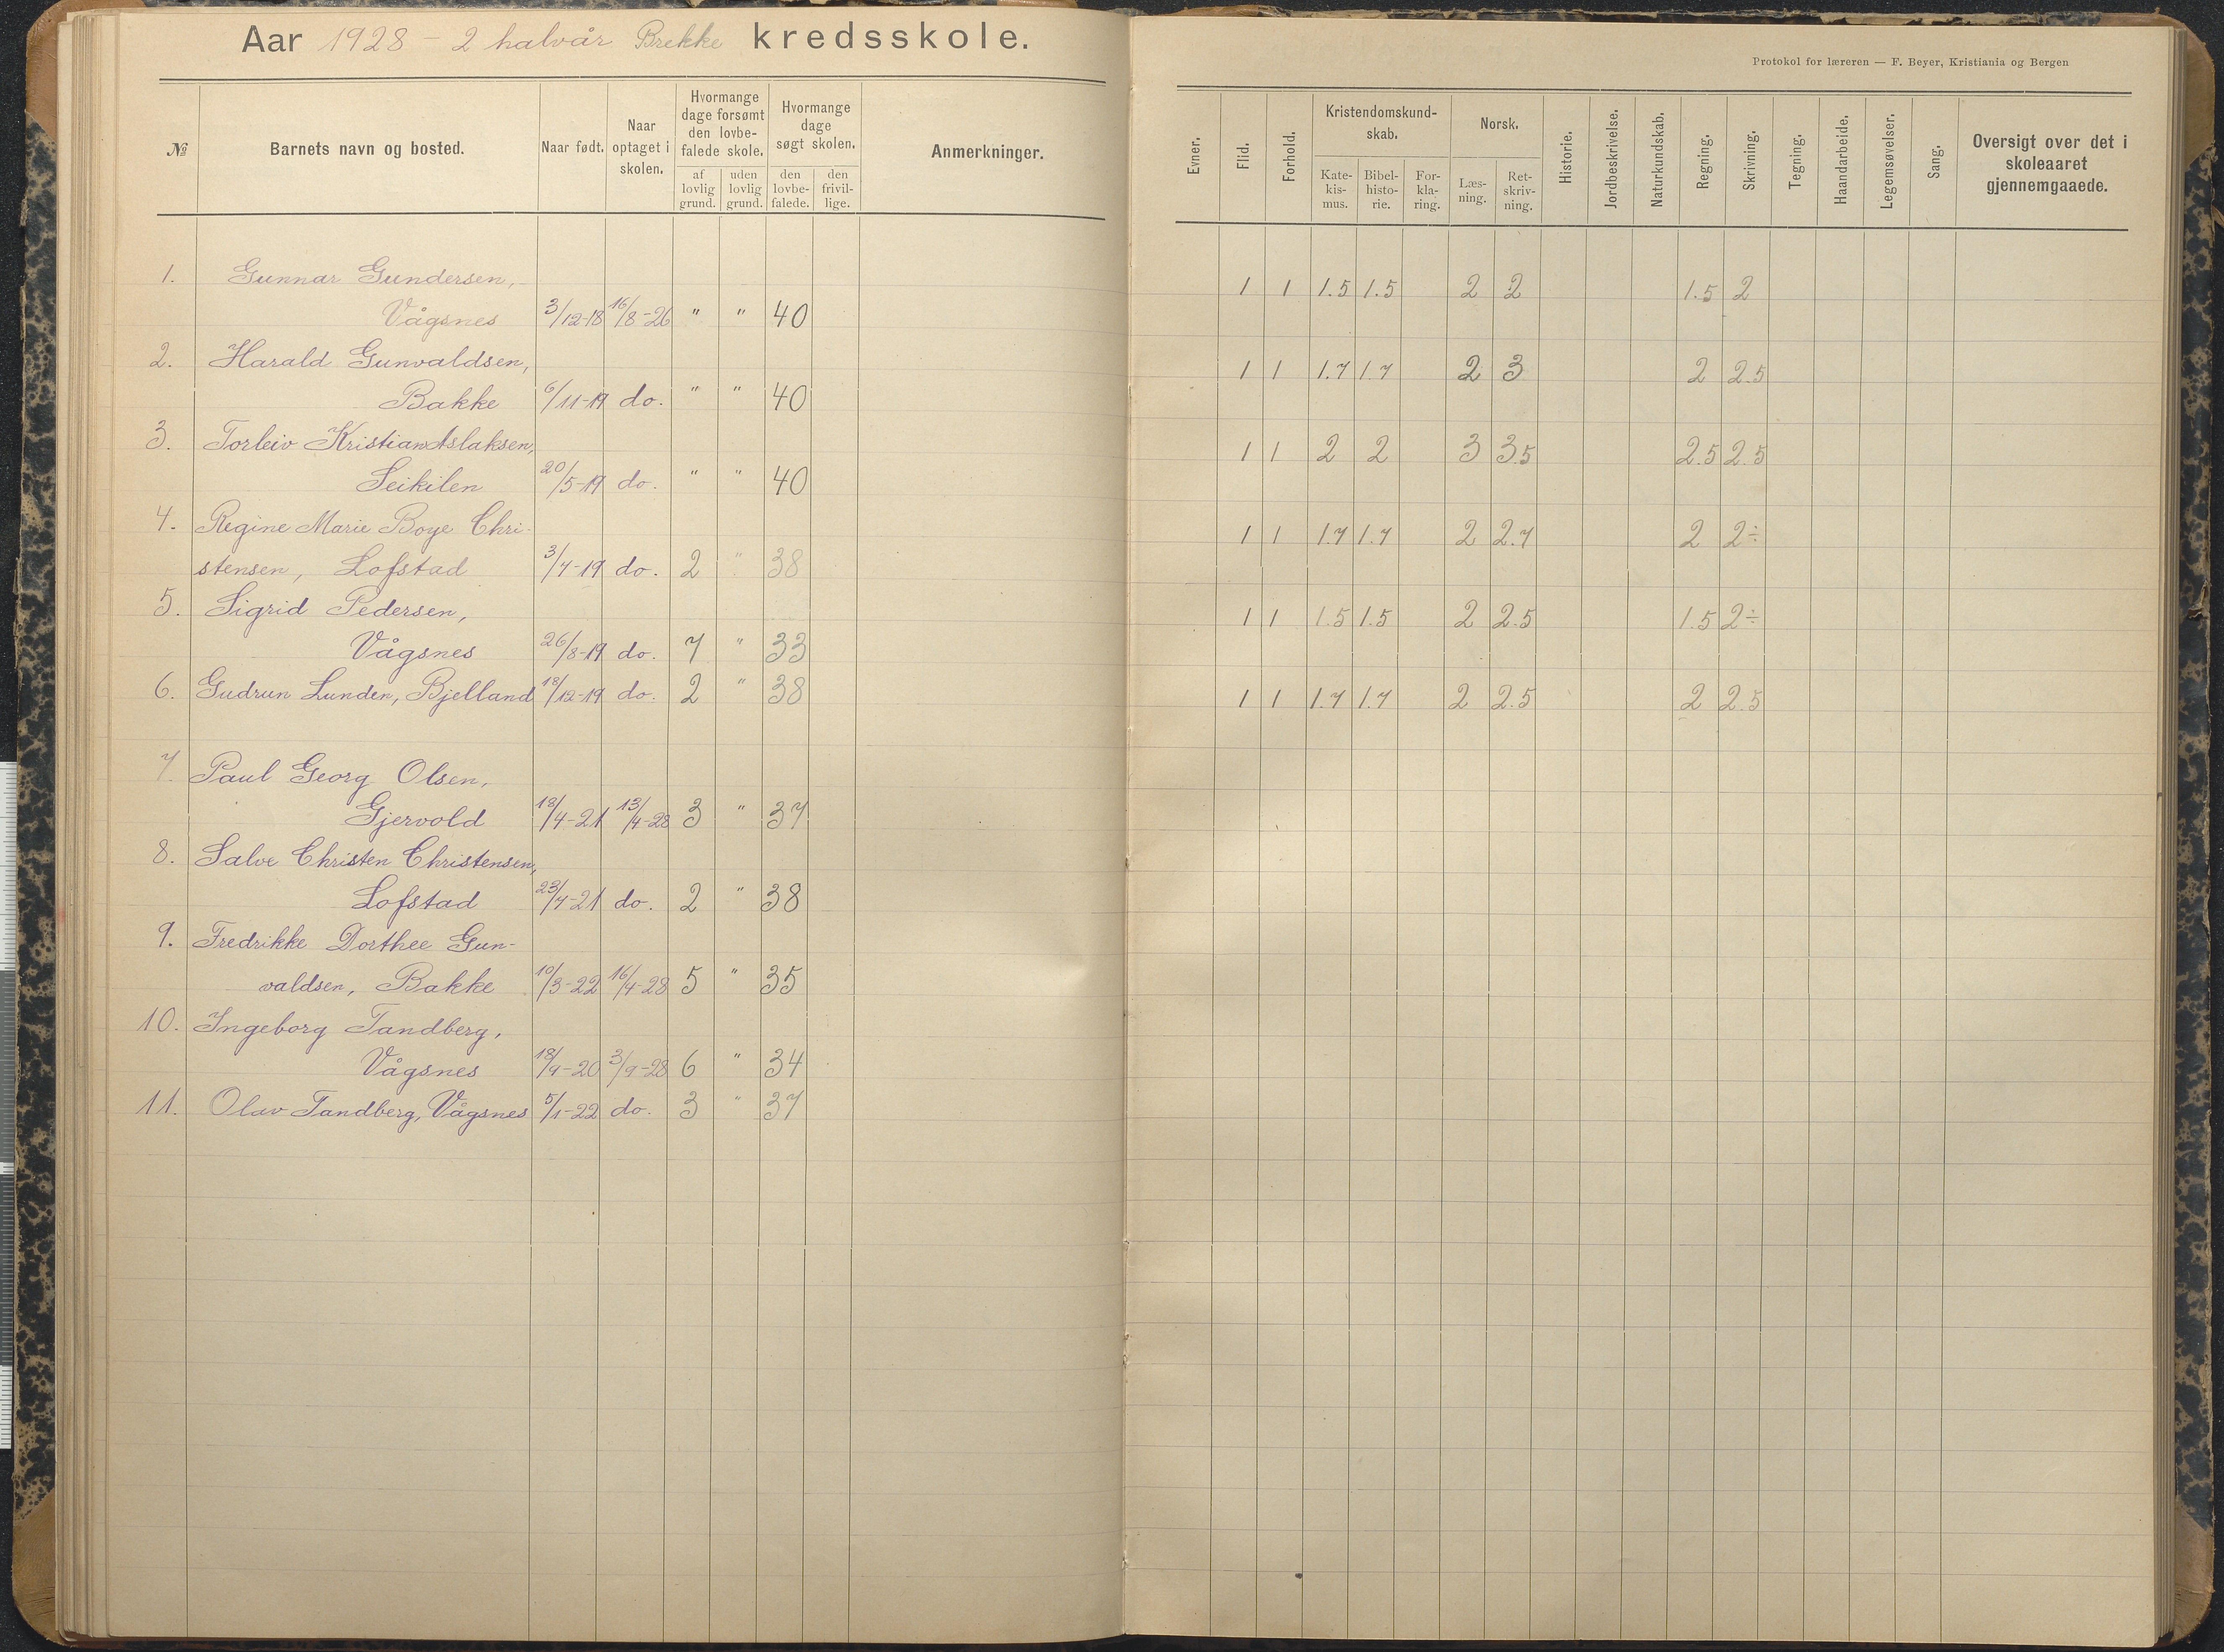 Aar 1928 - 2 halvår Brekke kredsskole.
№ Barnets navn og bosted. Naar født. Naar optaget i skolen. Hvormange dage forsømt den lovbefalede skole. Hvormange dage søgt skolen. Anmerkninger.
af lovlig grund. uden lovlig grund. den lovbefalede. den frivillige.
1. Gunnar Gundersen,
Vågsnes 3/12-18 16/8-26 " " 40
2. Harald Gunvaldsen,
Bakke 6/11-19 do. " " 40
3. Torleiv Kristian Aslaksen,
Seikilen 20/5-19 do. " " 40
4. Regine Marie Boye Chri-
stensen, Lofstad 3/7-19 do. 2 " 38
5. Sigrid Pedersen,
Vågsnes 26/8-19 do. 7 " 33
6. Gudrun Lunden, Bjelland 18/12-19 do. 2 " 38
7. Paul Georg Olsen,
Gjervold 18/4-21 13/4-28 3 " 37
8. Salve Christen Christensen,
Lofstad 23/7-21 do. 2 " 38
9. Fredrikke Dorthee Gun-
valdsen, Bakke 10/3-22 16/4-28 5 " 35
10. Ingeborg Tandberg,
Vågsnes 18/9-20 3/9-28 6 " 34
11. Olav Tandberg, Vågsnes 5/1-22 do. 3 " 37
Protokol for læreren — F. Beyer, Kristiania og Bergen
Evner. Flid. Forhold. Kristendomskundskab. Norsk. Historie. Jordbeskrivelse. Naturkundskab. Regning. Skrivning. Tegning. Haandarbeide. Legemsøvelser. Sang. Oversigt over det i skoleaaret gjennemgaaede.
Katekismus. Bibelhistorie. Forklaring. Læsning. Retskrivning.
1 1 1.5 1.5 2 2 1.5 2
1 1 1.7 1.7 2 3 2 2.5
1 1 2 2 3 3.5 2.5 2.5
1 1 1.7 1.7 2 2.7 2 2÷
1 1 1.5 1.5 2 2.5 1.5 2÷
1 1 1.7 1.7 2 2.5 2 2.5